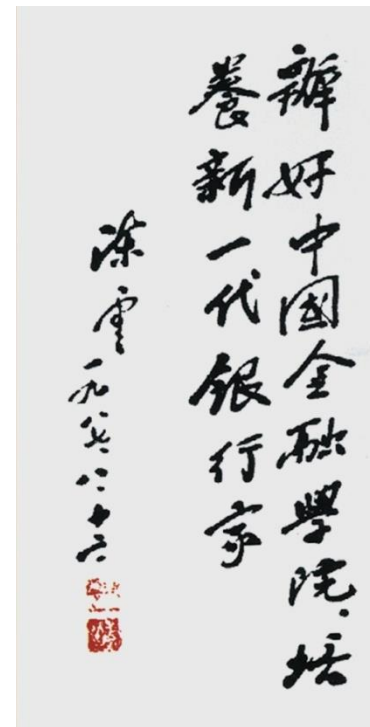 辦好中國金融學院、培
養新一代銀行家
陳雲 一九八七、